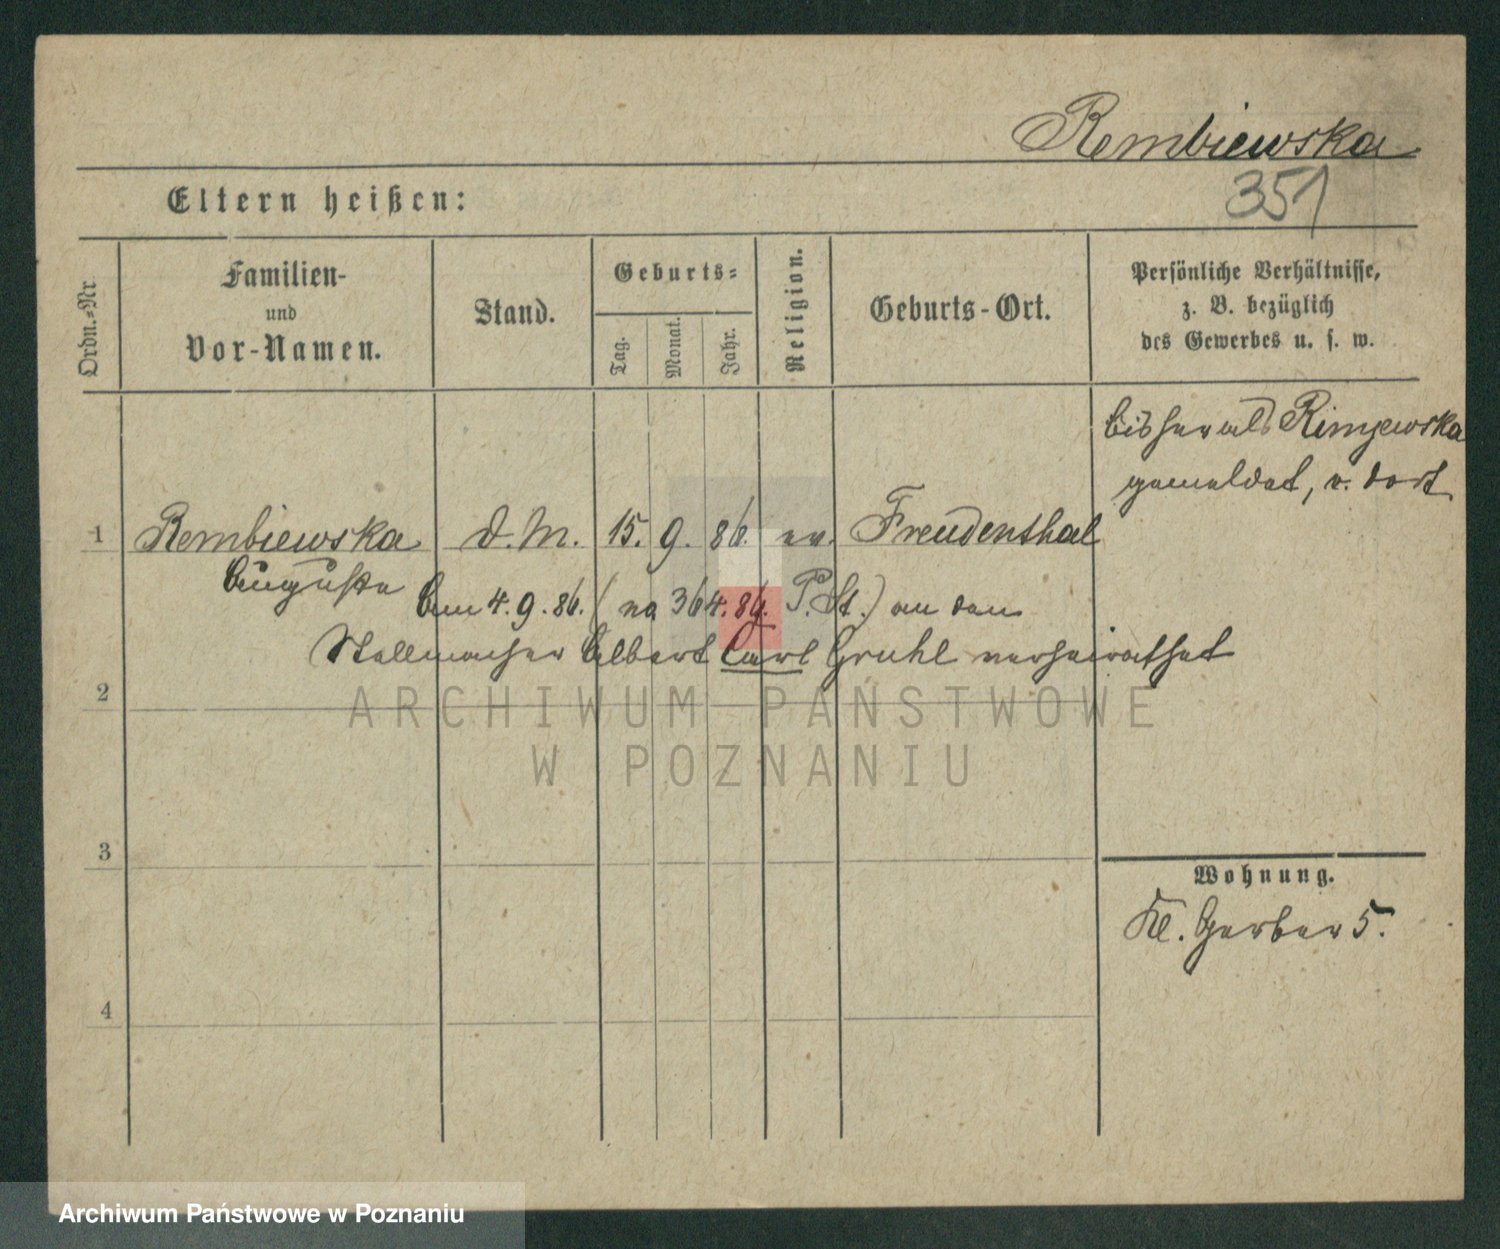 Rembiewska
351
Eltern heißen:
Ordn.-Nr.
Familien-
und
Vor-Namen.
Stand.
Geburts-
Tag.
Monat.
Jahr.
Religion.
Geburts-Ort.
Persönliche Verhältnisse,
z. B. bezüglich
des Gewerbes u. s. w.
bisher als Rimjewska
gemeldet, v. dort
1 Rembiewska D.M. 15. 9. 86. ev. Freudenthal
Auguste
Am 4.9.86. ( no 364.86. P. St.) an den
Stellmacher Albert Carl Gruhl verheirathet
2
ARCHIWUM PAŃSTWOWE
W POZNANIU
3
Wohnung.
Kl. Gerber 5.
4
Archiwum Państwowe w Poznaniu